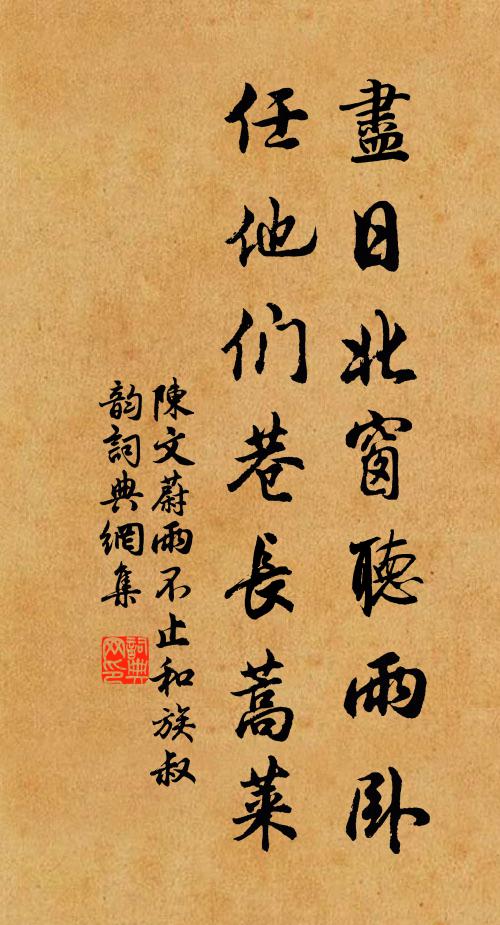 盡日北窗聽雨卧
任他们巷長蒿萊
陳文蔚雨不止和族叔
韵詞典網集
詞典网印